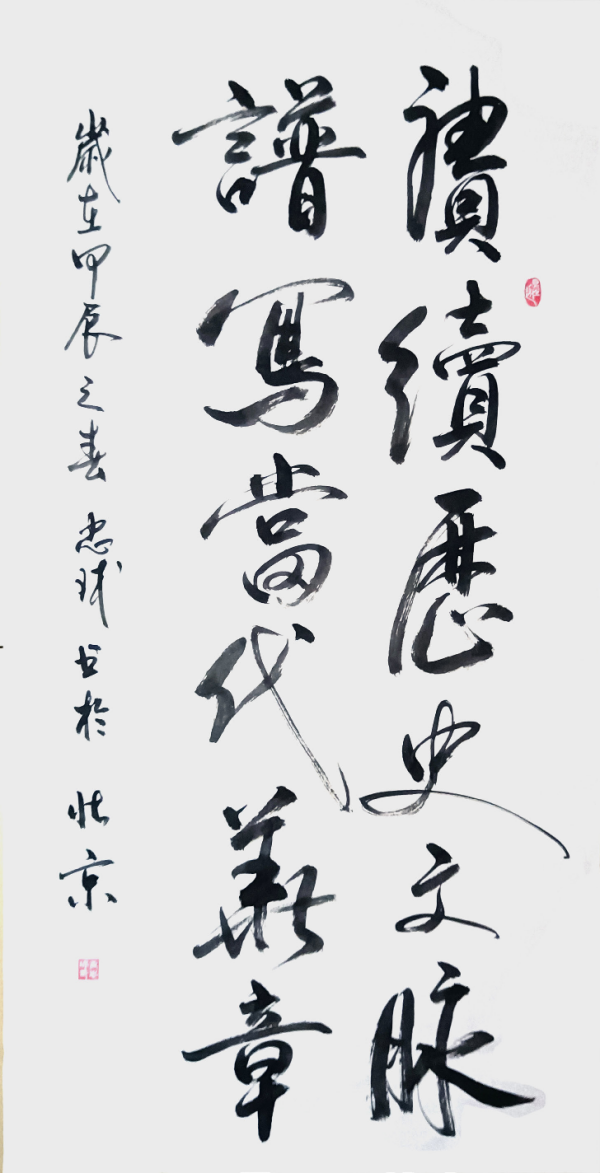 賡續歷史文脈
譜寫當代華章
歲在甲辰之春 忠球书於 北京